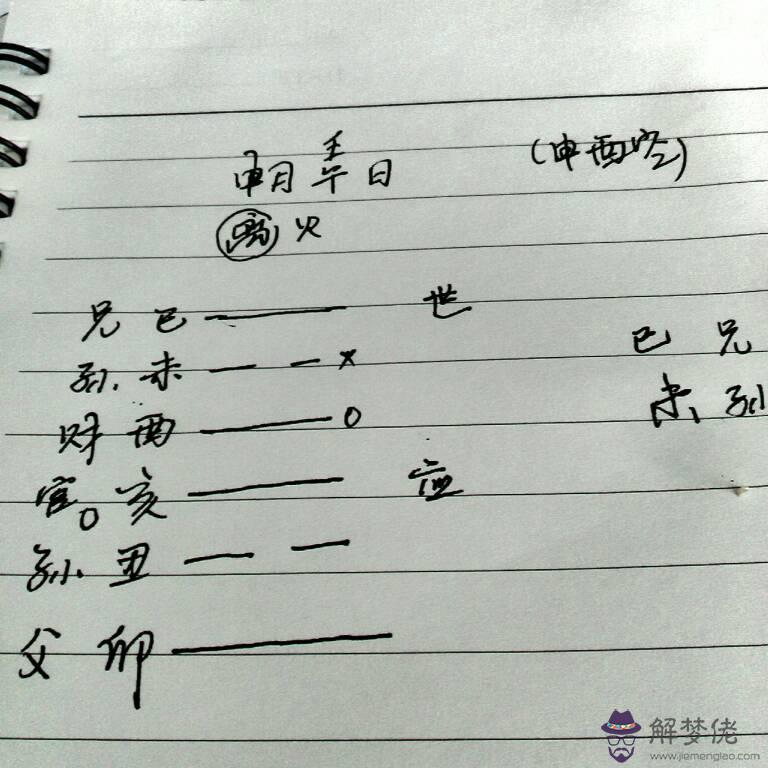 申月 壬午日 (申酉空)
离火
兄 巳 世
孙 未 × 巳 兄
财 酉 O 未 孙
官 O 亥 应
孙 丑
父 卯
解梦佬
www.jiemenglao.com